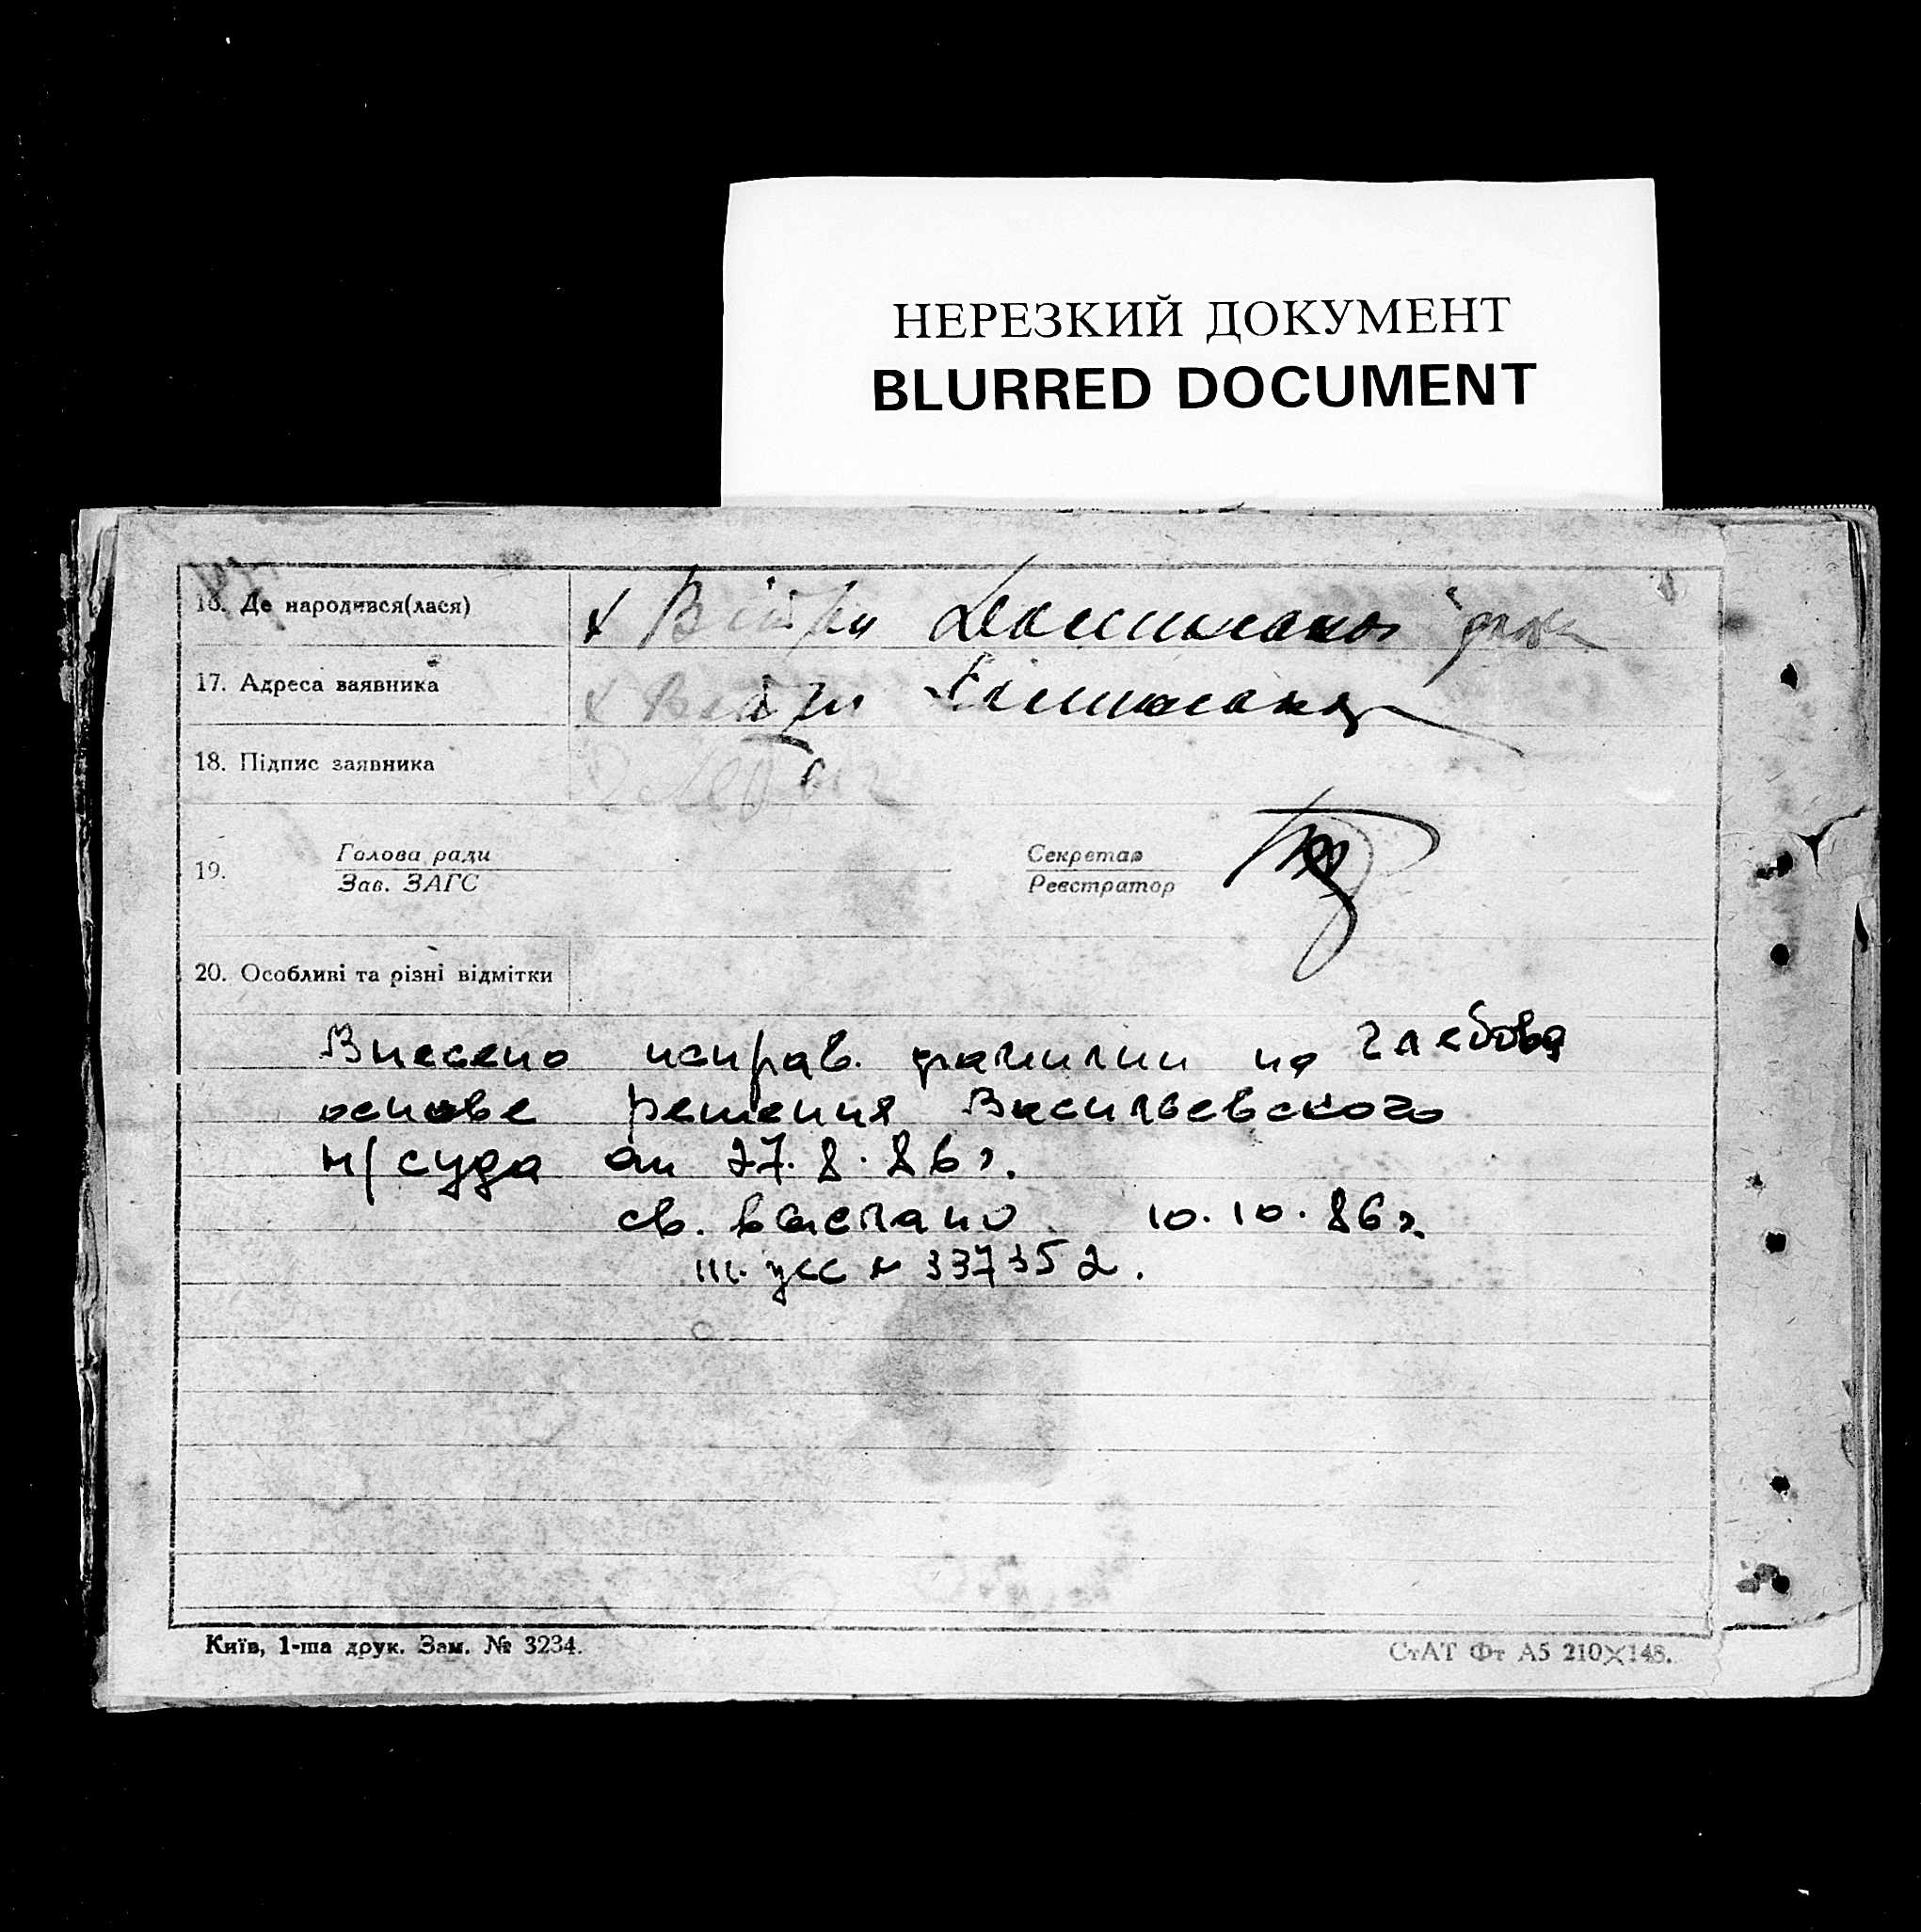 НЕРЕЗКИЙ ДОКУМЕНТ
BLURRED DOCUMENT
16. Де народився(лася)
17. Адреса заявника
18. Підпис заявника
19. Голова ради Секретар
Зав. ЗАГС Реєстратор
20. Особливі та різні відмітки
Внесено исправ. фамилии на Глебова
основе решения Васильевского
н/суда от 27.8.86г.
св. выслано 10.10.86г.
№ 337352.
Київ, 1-ша друк. Зам. № 3234.
СтАТ Фт А5 210×148.